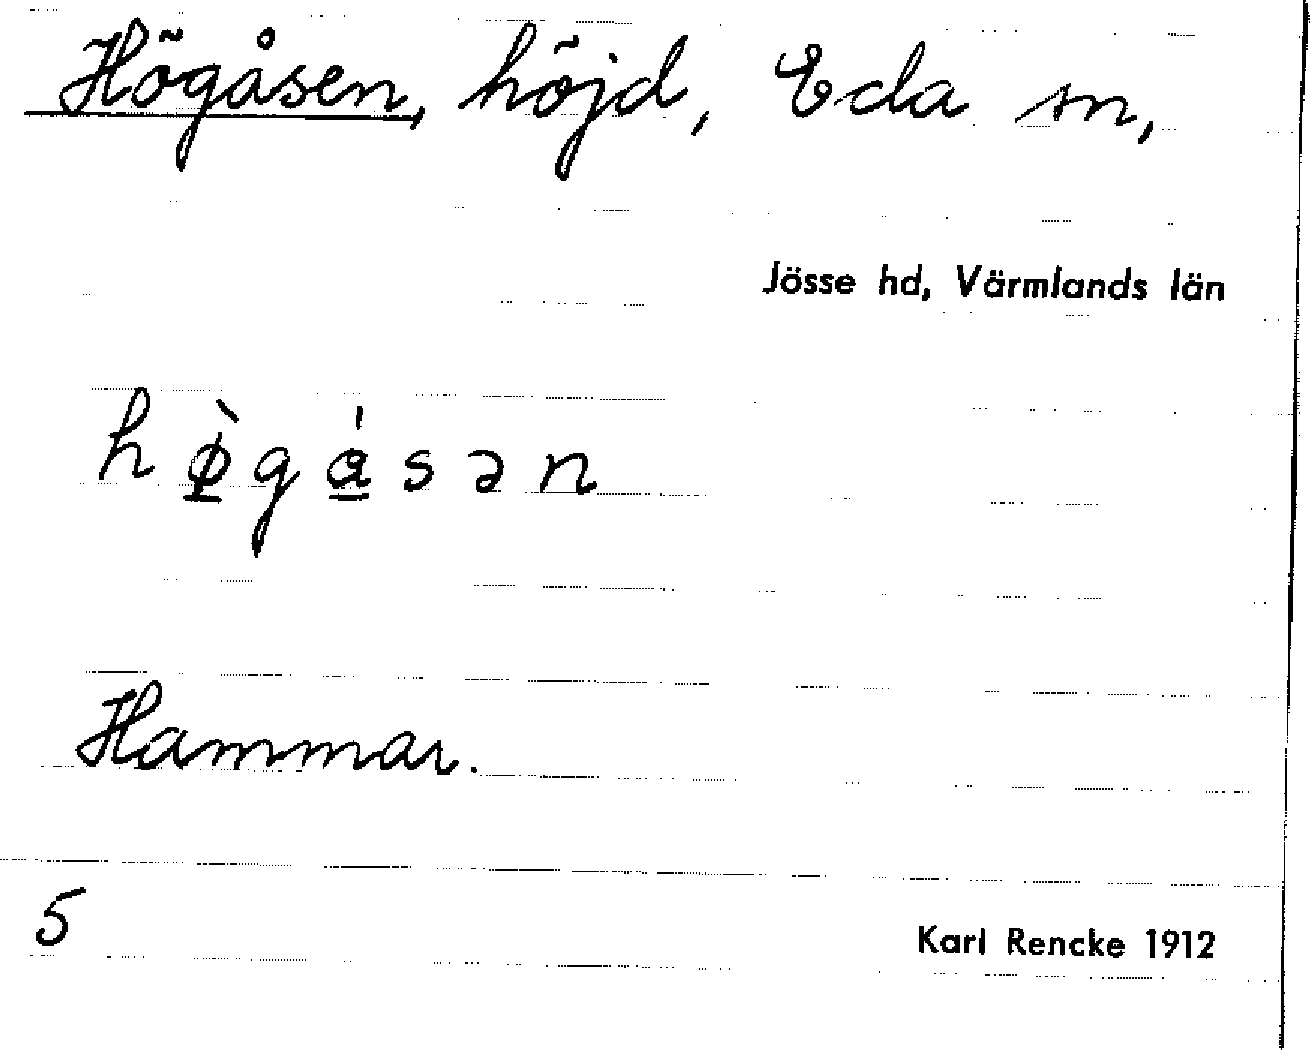 Högåsen, höjd, Eda sn,
Jösse hd, Värmlands län
hø̠̀gá̠sən
Hammar.
5
Karl Rencke 1912